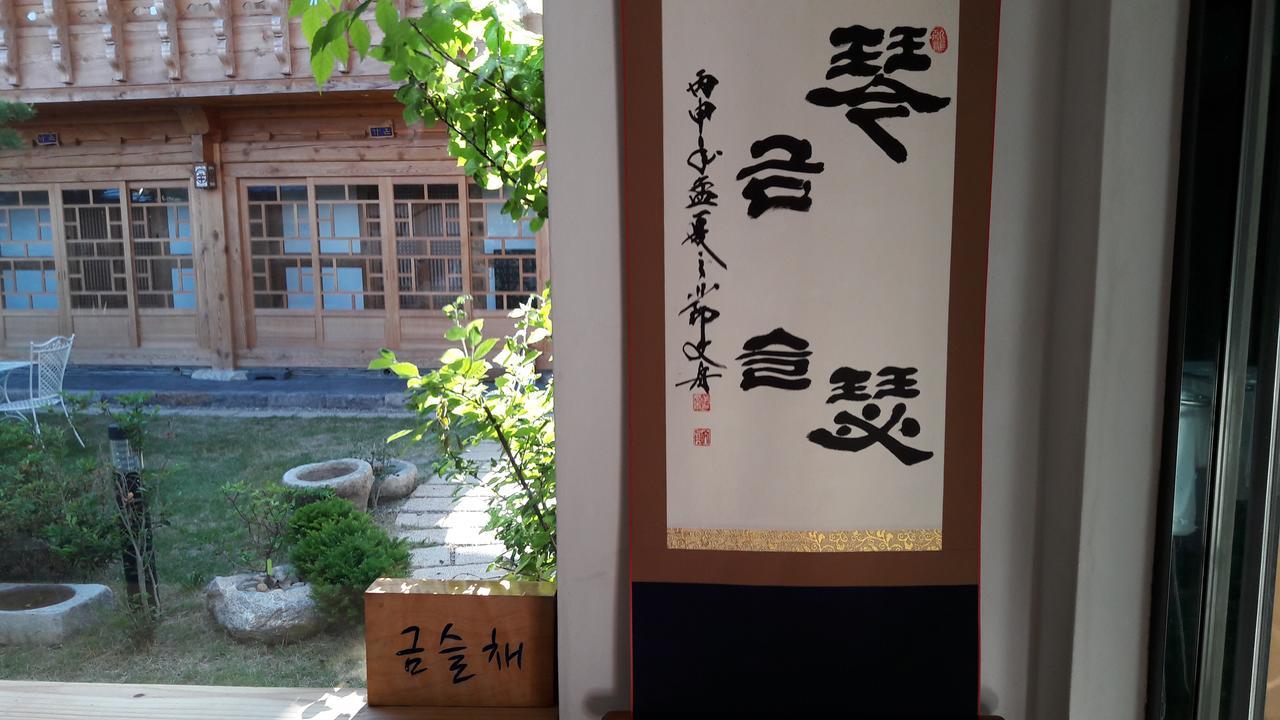 琴瑟
금슬
丙申年孟夏之
금슬채